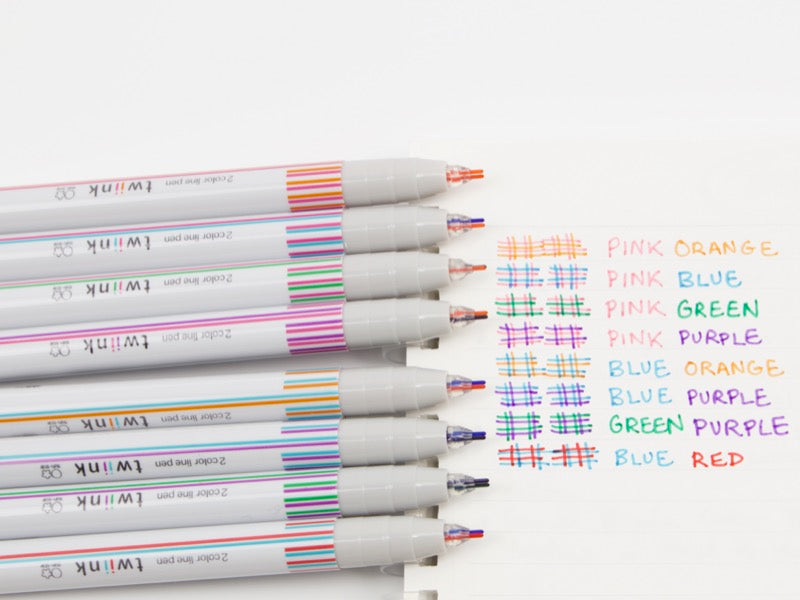 2 color line pen twiink
2 color line pen twiink
2 color line pen twiink
2 color line pen twiink
2 color line pen twiink
2 color line pen twiink
2 color line pen twiink
2 color line pen twiink
PINK ORANGE
PINK BLUE
PINK GREEN
PINK PURPLE
BLUE ORANGE
BLUE PURPLE
GREEN PURPLE
BLUE RED